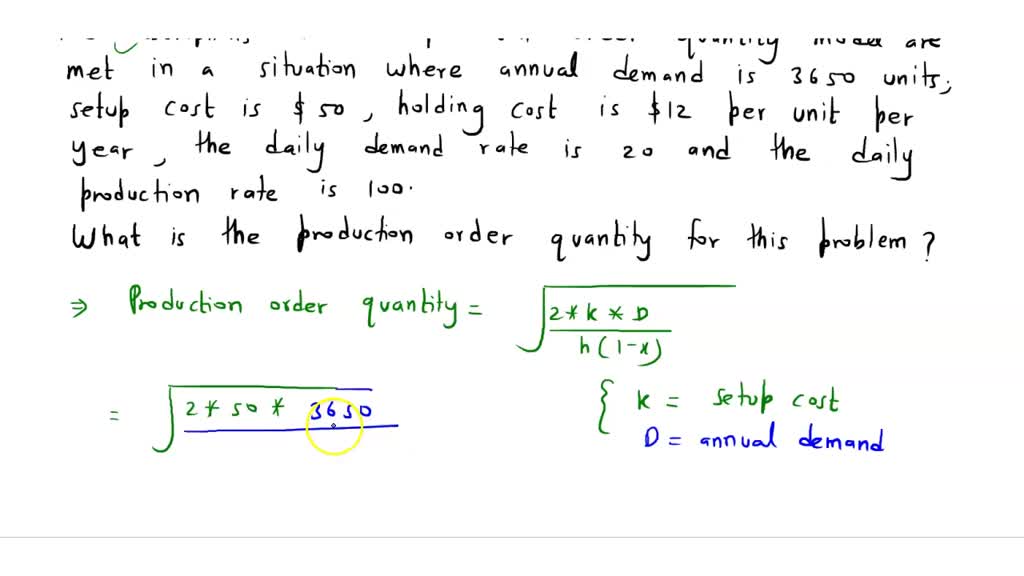 quantity model are
met in a situation where annual demand is 3650 units;
setup cost is $ 50, holding cost is $12 per unit per
year, the daily demand rate is 20 and the daily
production rate is 100.
What is the production order quantity for this problem?
⇒ Production order quantity = √ 2 * K * D
h (1-x)
= √ 2 * 50 * 3650
{ K = setup cost
D = annual demand